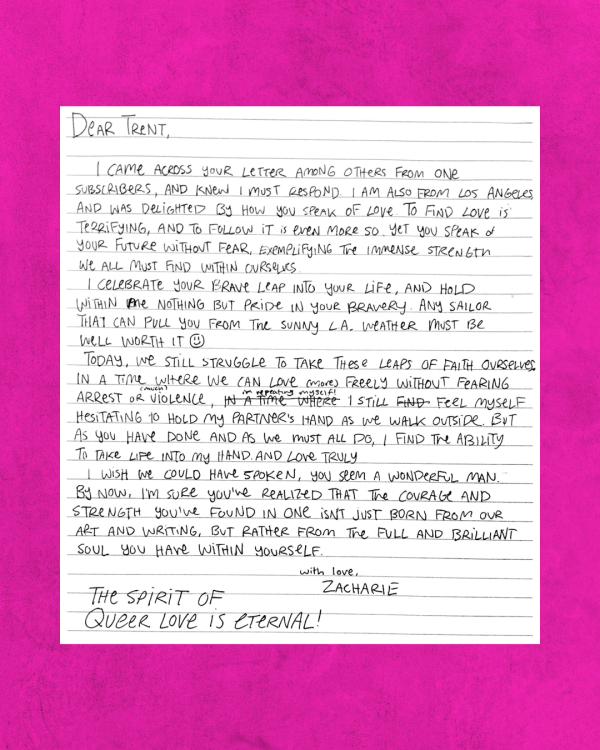 DEAR TRENT,
I CAME ACROSS YOUR LETTER AMONG OTHERS FROM ONE
SUBSCRIBERS, AND KNEW I MUST RESPOND. I AM ALSO FROM LOS ANGELES
AND WAS DELIGHTED BY HOW YOU SPEAK OF LOVE. TO FIND LOVE IS
TERRIFYING, AND TO FOLLOW IT IS EVEN MORE SO. YET YOU SPEAK of
YOUR FUTURE WITHOUT FEAR, EXEMPLIFYING THE IMMENSE STRENGTH
WE ALL MUST FIND WITHIN OURSELVES.
I CELEBRATE YOUR BRAVE LEAP INTO YOUR LIFE, AND HOLD
WITHIN ME NOTHING BUT PRIDE IN YOUR BRAVERY. ANY SAILOR
THAT CAN PULL YOU FROM THE SUNNY L.A. WEATHER MUST BE
WELL WORTH IT ☺
TODAY, WE STILL STRUGGLE TO TAKE THESE LEAPS OF FAITH OURSELVES.
IN A TIME WHERE WE CAN LOVE (MORE) FREELY WITHOUT FEARING
(much)
im repeating myself!
ARREST OR VIOLENCE, IN A TIME WHERE I STILL FIND FEEL MYSELF
HESITATING TO HOLD MY PARTNER'S HAND AS WE WALK OUTSIDE. BUT
AS YOU HAVE DONE AND AS WE MUST ALL DO, I FIND THE ABILITY
TO TAKE LIFE INTO MY HAND AND LOVE TRULY
I WISH WE COULD HAVE SPOKEN, YOU SEEM A WONDERFUL MAN.
BY NOW, I'M SURE YOU'VE REALIZED THAT THE COURAGE AND
STRENGTH YOU'VE FOUND IN ONE ISN'T JUST BORN FROM OUR
ART AND WRITING, BUT RATHER FROM THE FULL AND BRILLIANT
SOUL YOU HAVE WITHIN YOURSELF.
with love,
ZACHARIE
THE SPIRIT OF
QUEER LOVE IS ETERNAL!